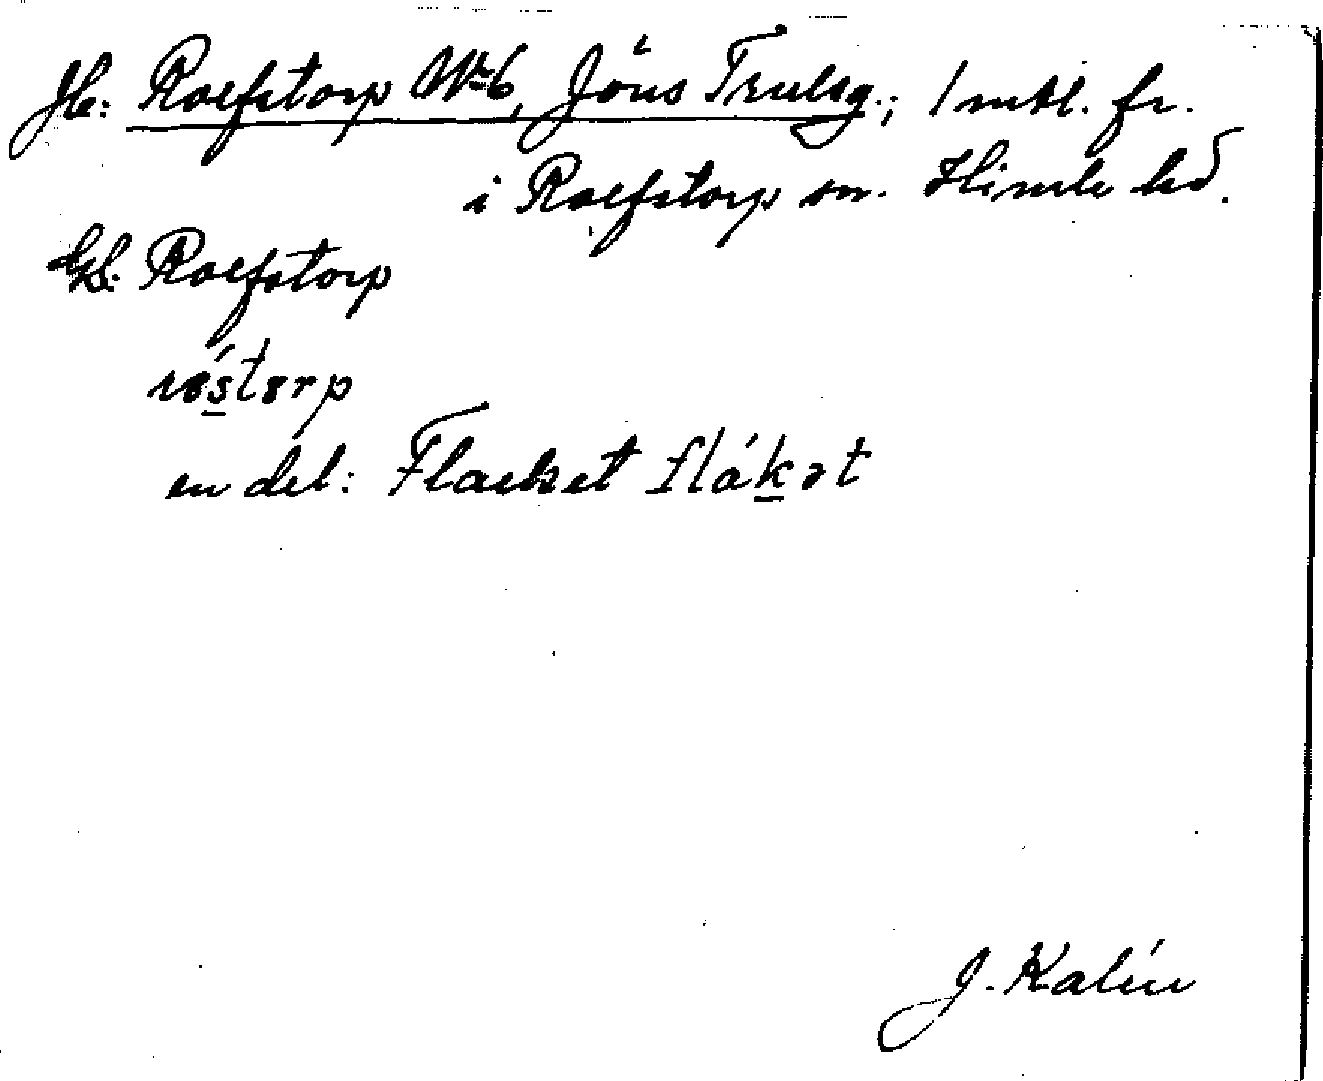 Jb: Rolfstorp No 6, Jöns Trulsg.; 1 mtl. fr.
i Rolfstorp sn. Himle hd.
Gd: Rolfstorp
en del: Flacket flákət
J. Kalén